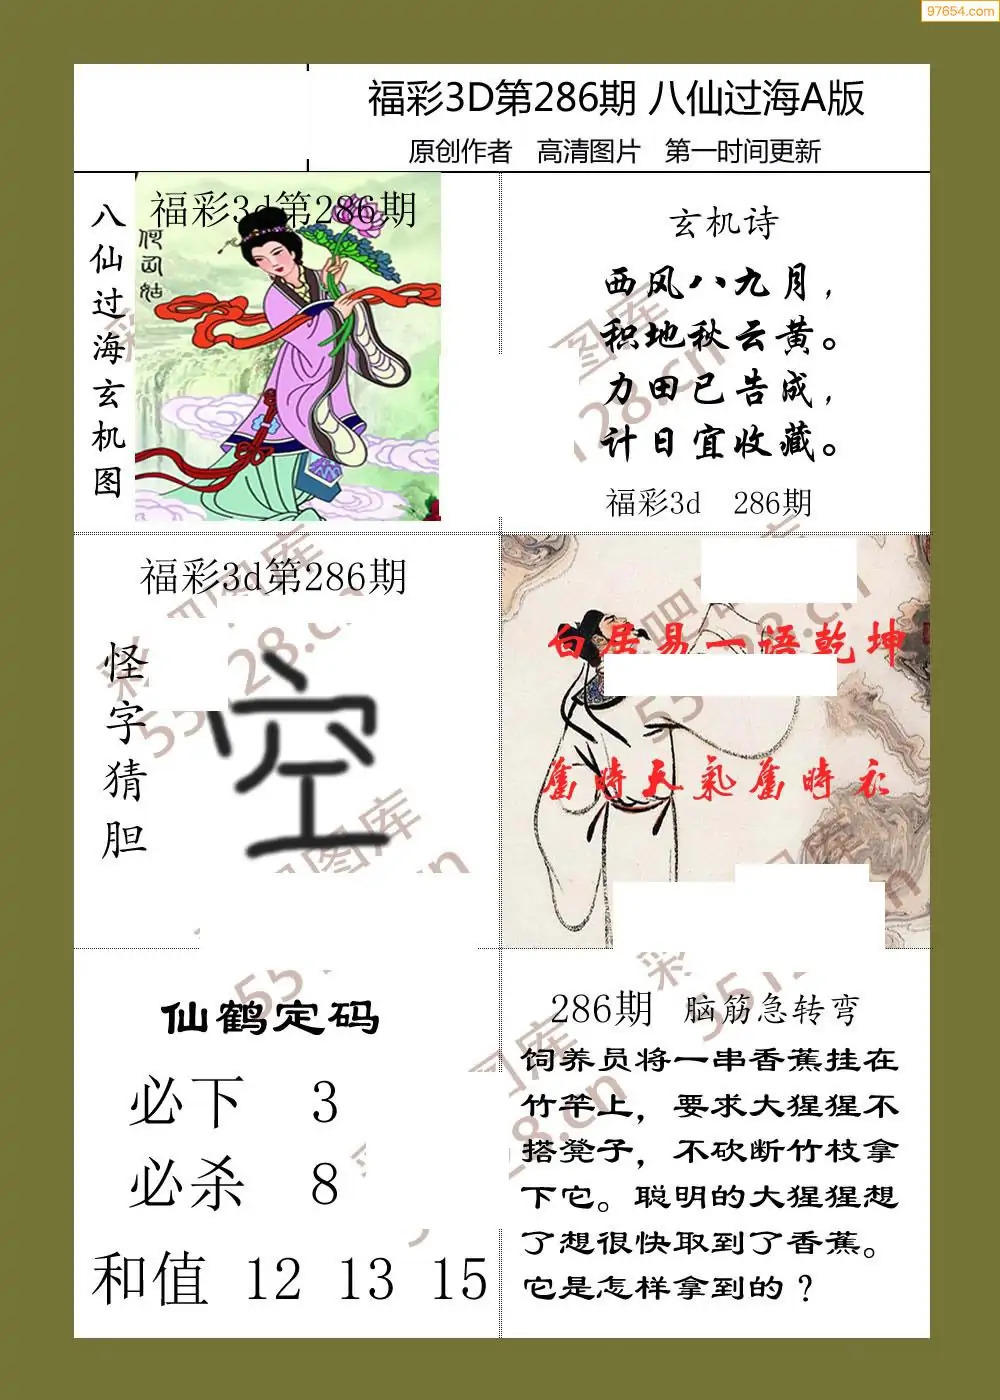 97654.com
福彩3D第286期 八仙过海A版
原创作者 高清图片 第一时间更新
八仙过海玄机图
福彩3d第286期
何仙姑
玄机诗
西风八九月，
积地秋云黄。
力田已告成，
计日宜收藏。
福彩3d 286期
福彩3d第286期
怪字猜胆
空
白居易一语乾坤
旧时天气旧时衣
仙鹤定码
必下 3
必杀 8
和值 12 13 15
286期 脑筋急转弯
饲养员将一串香蕉挂在
竹竿上，要求大猩猩不
搭凳子，不砍断竹枝拿
下它。聪明的大猩猩想
了想很快取到了香蕉。
它是怎样拿到的？